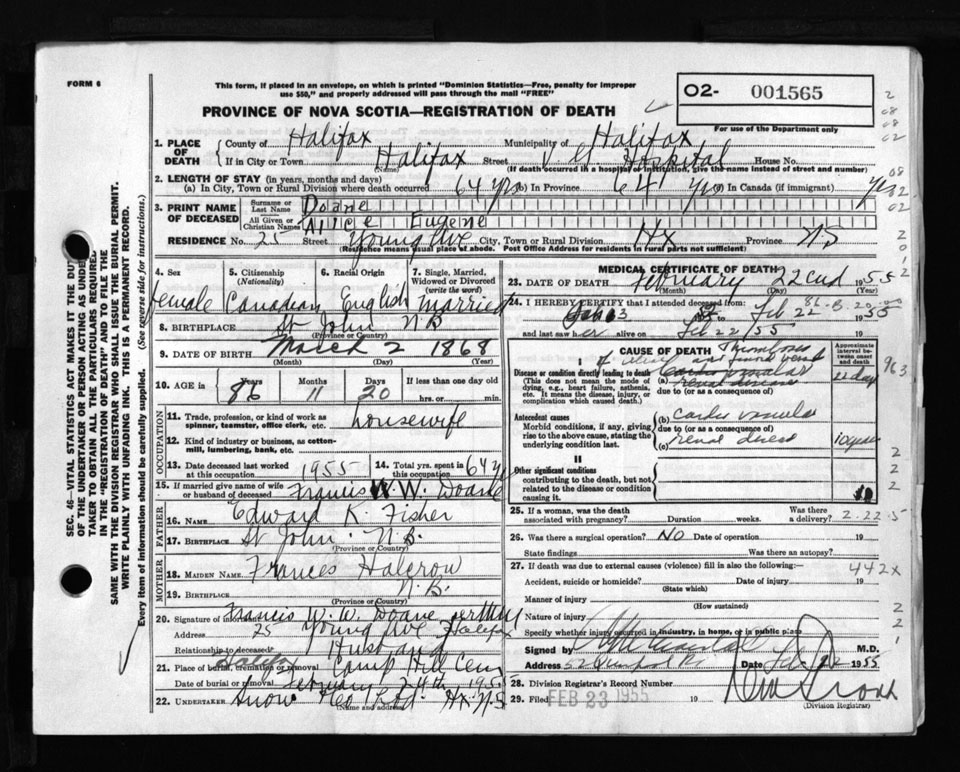 FORM 6
This form, if placed in an envelope, on which is printed "Dominion Statistics—Free, penalty for improper
use $50," and properly addressed will pass through the mail "FREE"
O2- 001565
For use of the Department only
PROVINCE OF NOVA SCOTIA—REGISTRATION OF DEATH
1. PLACE OF DEATH
County of Halifax Municipality of Halifax
If in City or Town Halifax (Name) Street V. G. Hospital House No.
(If death occurred in a hospital or institution, give the name instead of street and number)
2. LENGTH OF STAY (in years, months and days)
(a) In City, Town or Rural Division where death occurred 64 yrs (b) In Province 64 yrs (c) In Canada (if immigrant) yrs
3. PRINT NAME OF DECEASED
Surname or Last Name Doane
All Given or Christian Names Alice Eugene
RESIDENCE No. 25 Street Young Ave City, Town or Rural Division Hx Province NS
(Residence means usual place of abode. Post Office Address for residents in rural parts not sufficient)
4. Sex Female
5. Citizenship (Nationality) Canadian
6. Racial Origin English
7. Single, Married, Widowed or Divorced (write the word) Married
8. BIRTHPLACE St John N.B.
(Province or Country)
9. DATE OF BIRTH March 2 1868
(Month) (Day) (Year)
10. AGE in Years 86 Months 11 Days 20 If less than one day old
hrs. or min.
OCCUPATION
11. Trade, profession, or kind of work as
spinner, teamster, office clerk, etc. housewife
12. Kind of industry or business, as cotton-
mill, lumbering, bank, etc.
13. Date deceased last worked
at this occupation 1955
14. Total yrs. spent in
this occupation 64 y
15. If married give name of wife
or husband of deceased Francis W. W. Doane
FATHER
16. NAME Edward K. Fisher
17. BIRTHPLACE St John. N.B.
(Province or Country)
MOTHER
18. MAIDEN NAME Frances Halcrow
19. BIRTHPLACE N.B.
(Province or Country)
20. Signature of informant Francis W. W. Doane
Address 25 Young Ave Halifax
Relationship to deceased Husband
21. Place of burial, cremation or removal Halifax Camp Hill Cem
Date of burial or removal February 24th 1955
22. UNDERTAKER Snow & Co Ltd. Hx N.S
(Name and address)
MEDICAL CERTIFICATE OF DEATH
23. DATE OF DEATH February 22nd 1955
(Month) (Day) (Year)
24. I HEREBY CERTIFY that I attended deceased from:
Feb 3 to Feb 22 1955
and last saw her alive on Feb 22/55 19
CAUSE OF DEATH
Approximate interval between onset and death
I
Disease or condition directly leading to death
(This does not mean the mode of dying, e.g., heart failure, asthenia, etc. It means the disease, injury, or complication which caused death.)
(a)
due to (or as a consequence of)
Antecedent causes
Morbid conditions, if any, giving rise to the above cause, stating the underlying condition last.
(b) cardio vascular
due to (or as a consequence of)
(c) renal disease 10 years
II
Other significant conditions
contributing to the death, but not related to the disease or condition causing it.
25. If a woman, was the death
associated with pregnancy? Duration weeks. Was there a delivery?
26. Was there a surgical operation? No Date of operation 19
State findings Was there an autopsy?
27. If death was due to external causes (violence) fill in also the following:—
Accident, suicide or homicide? Date of injury 19
(State which)
Manner of injury
(How sustained)
Nature of injury
Specify whether injury occurred in industry, in home, or in public place
Signed by M.D.
Address Date Feb 22 1955
28. Division Registrar's Record Number
29. Filed FEB 23 1955 19
(Division Registrar)
963
2-22-5
442X
SEC. 46—VITAL STATISTICS ACT MAKES IT THE DUTY
OF THE UNDERTAKER OR PERSON ACTING AS UNDER-
TAKER TO OBTAIN ALL THE PARTICULARS REQUIRED
IN THE "REGISTRATION OF DEATH" AND TO FILE THE
SAME WITH THE DIVISION REGISTRAR WHO SHALL ISSUE THE BURIAL PERMIT.
WRITE PLAINLY WITH UNFADING INK. THIS IS A PERMANENT RECORD.
Every item of information should be carefully supplied. (See reverse side for instructions.)